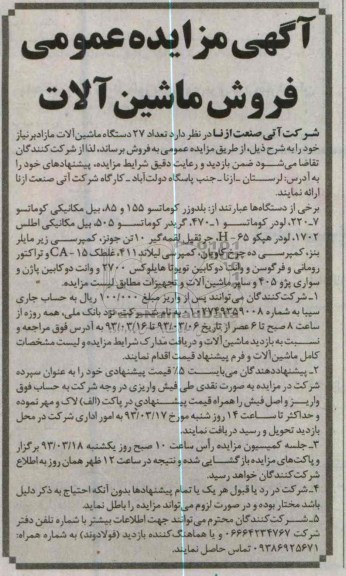 آگهی مزایده عمومی
فروش ماشین آلات
شرکت آتی صنعت ازنا در نظر دارد تعداد ۲۷ دستگاه ماشین‌آلات مازاد بر نیاز
خود را به شرح ذیل، از طریق مزایده عمومی به فروش برساند، لذا از شرکت‌کنندگان
تقاضا می‌شود ضمن بازدید و رعایت دقیق شرایط مزایده، پیشنهادهای خود را
به آدرس: لرستان ـ ازنا ـ جنب پاسگاه دولت‌آباد ـ کارگاه شرکت آتی صنعت ازنا
ارائه نمایند.
برخی از دستگاه‌ها عبارتند از: بلدوزر کوماتسو ۱۵۵ و ۸۵، بیل مکانیکی کوماتسو
۷-۲۲۰، لودر کوماتسو ۱-۴۷۰، گریدر کوماتسو ۵۰۵، بیل مکانیکی اطلس
۱۷۰۲، لودر هپکو H-۶۵، جرثقیل لقمه‌گیر ۱۰ تن جونز، کمپرسی زیر مایلر
بنز، کمپرسی ده چرخ کاویان، کمپرسی لیلاند ۴۱۱، غلطک CA-۱۵ و تراکتور
رومانی و فرگوسن و وانت دوکابین تویوتا هایلوکس ۲۷۰۰ و وانت دوکابین پاژن و
سواری پژو ۴۰۵ و سایر ماشین‌آلات و تجهیزات مطابق لیست مزایده.
۱ـ شرکت‌کنندگان می‌توانند پس از واریز مبلغ ۱۰۰/۰۰۰ ریال به حساب جاری
سیبا به شماره ۰۱۰۲۷۴۹۳۵۹۰۰۸ به نام شرکت نزد بانک ملی، همه روزه از
ساعت ۸ صبح تا ۶ عصر از تاریخ ۹۳/۰۳/۰۶ تا ۹۳/۰۳/۱۶ به آدرس فوق مراجعه و
نسبت به بازدید ماشین‌آلات و دریافت مدارک شرایط مزایده و لیست مشخصات
کامل ماشین‌آلات و فرم پیشنهاد قیمت اقدام نمایند.
۲ـ پیشنهاددهندگان می‌بایست ۵٪ قیمت پیشنهادی خود را به عنوان سپرده
شرکت در مزایده به صورت نقدی طی فیش واریزی در وجه شرکت به حساب فوق
واریز و اصل فیش را همراه قیمت پیشنهادی در پاکت (الف) لاک و مهر نموده
و حداکثر تا ساعت ۱۴ روز شنبه مورخ ۹۳/۰۳/۱۷ به امور اداری شرکت در محل
بازدید تحویل و رسید دریافت نمایند.
۳ـ جلسه کمیسیون مزایده رأس ساعت ۱۰ صبح روز یکشنبه ۹۳/۰۳/۱۸ برگزار
و پاکت‌های مزایده بازگشایی شده و نتیجه در ساعت ۱۲ ظهر همان روز به اطلاع
شرکت‌کنندگان خواهد رسید.
۴ـ شرکت در رد یا قبول هر یک یا تمام پیشنهادها بدون آنکه احتیاج به ذکر دلیل
باشد مختار بوده و در صورت لزوم می‌تواند مزایده را باطل نماید.
۵ـ شرکت‌کنندگان محترم می‌توانند جهت اطلاعات بیشتر با شماره تلفن دفتر
شرکت ۰۶۶۶۴۲۳۴۷۶۷ و یا هماهنگ‌کننده بازدید (فولادوند) به شماره همراه:
۰۹۳۸۶۹۲۵۶۷۱ تماس حاصل نمایند.